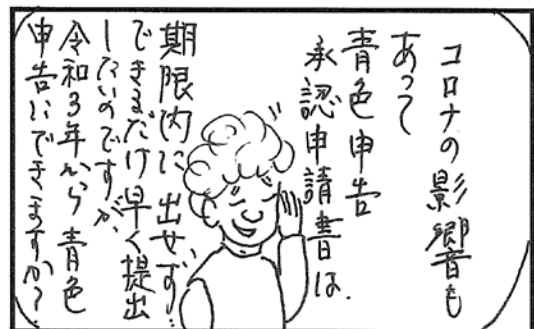 コロナの影響も
あって
青色申告
承認申請書は、
期限内に出せず…
できるだけ早く提出
したいのですが、
令和3年から青色
申告にできますか？